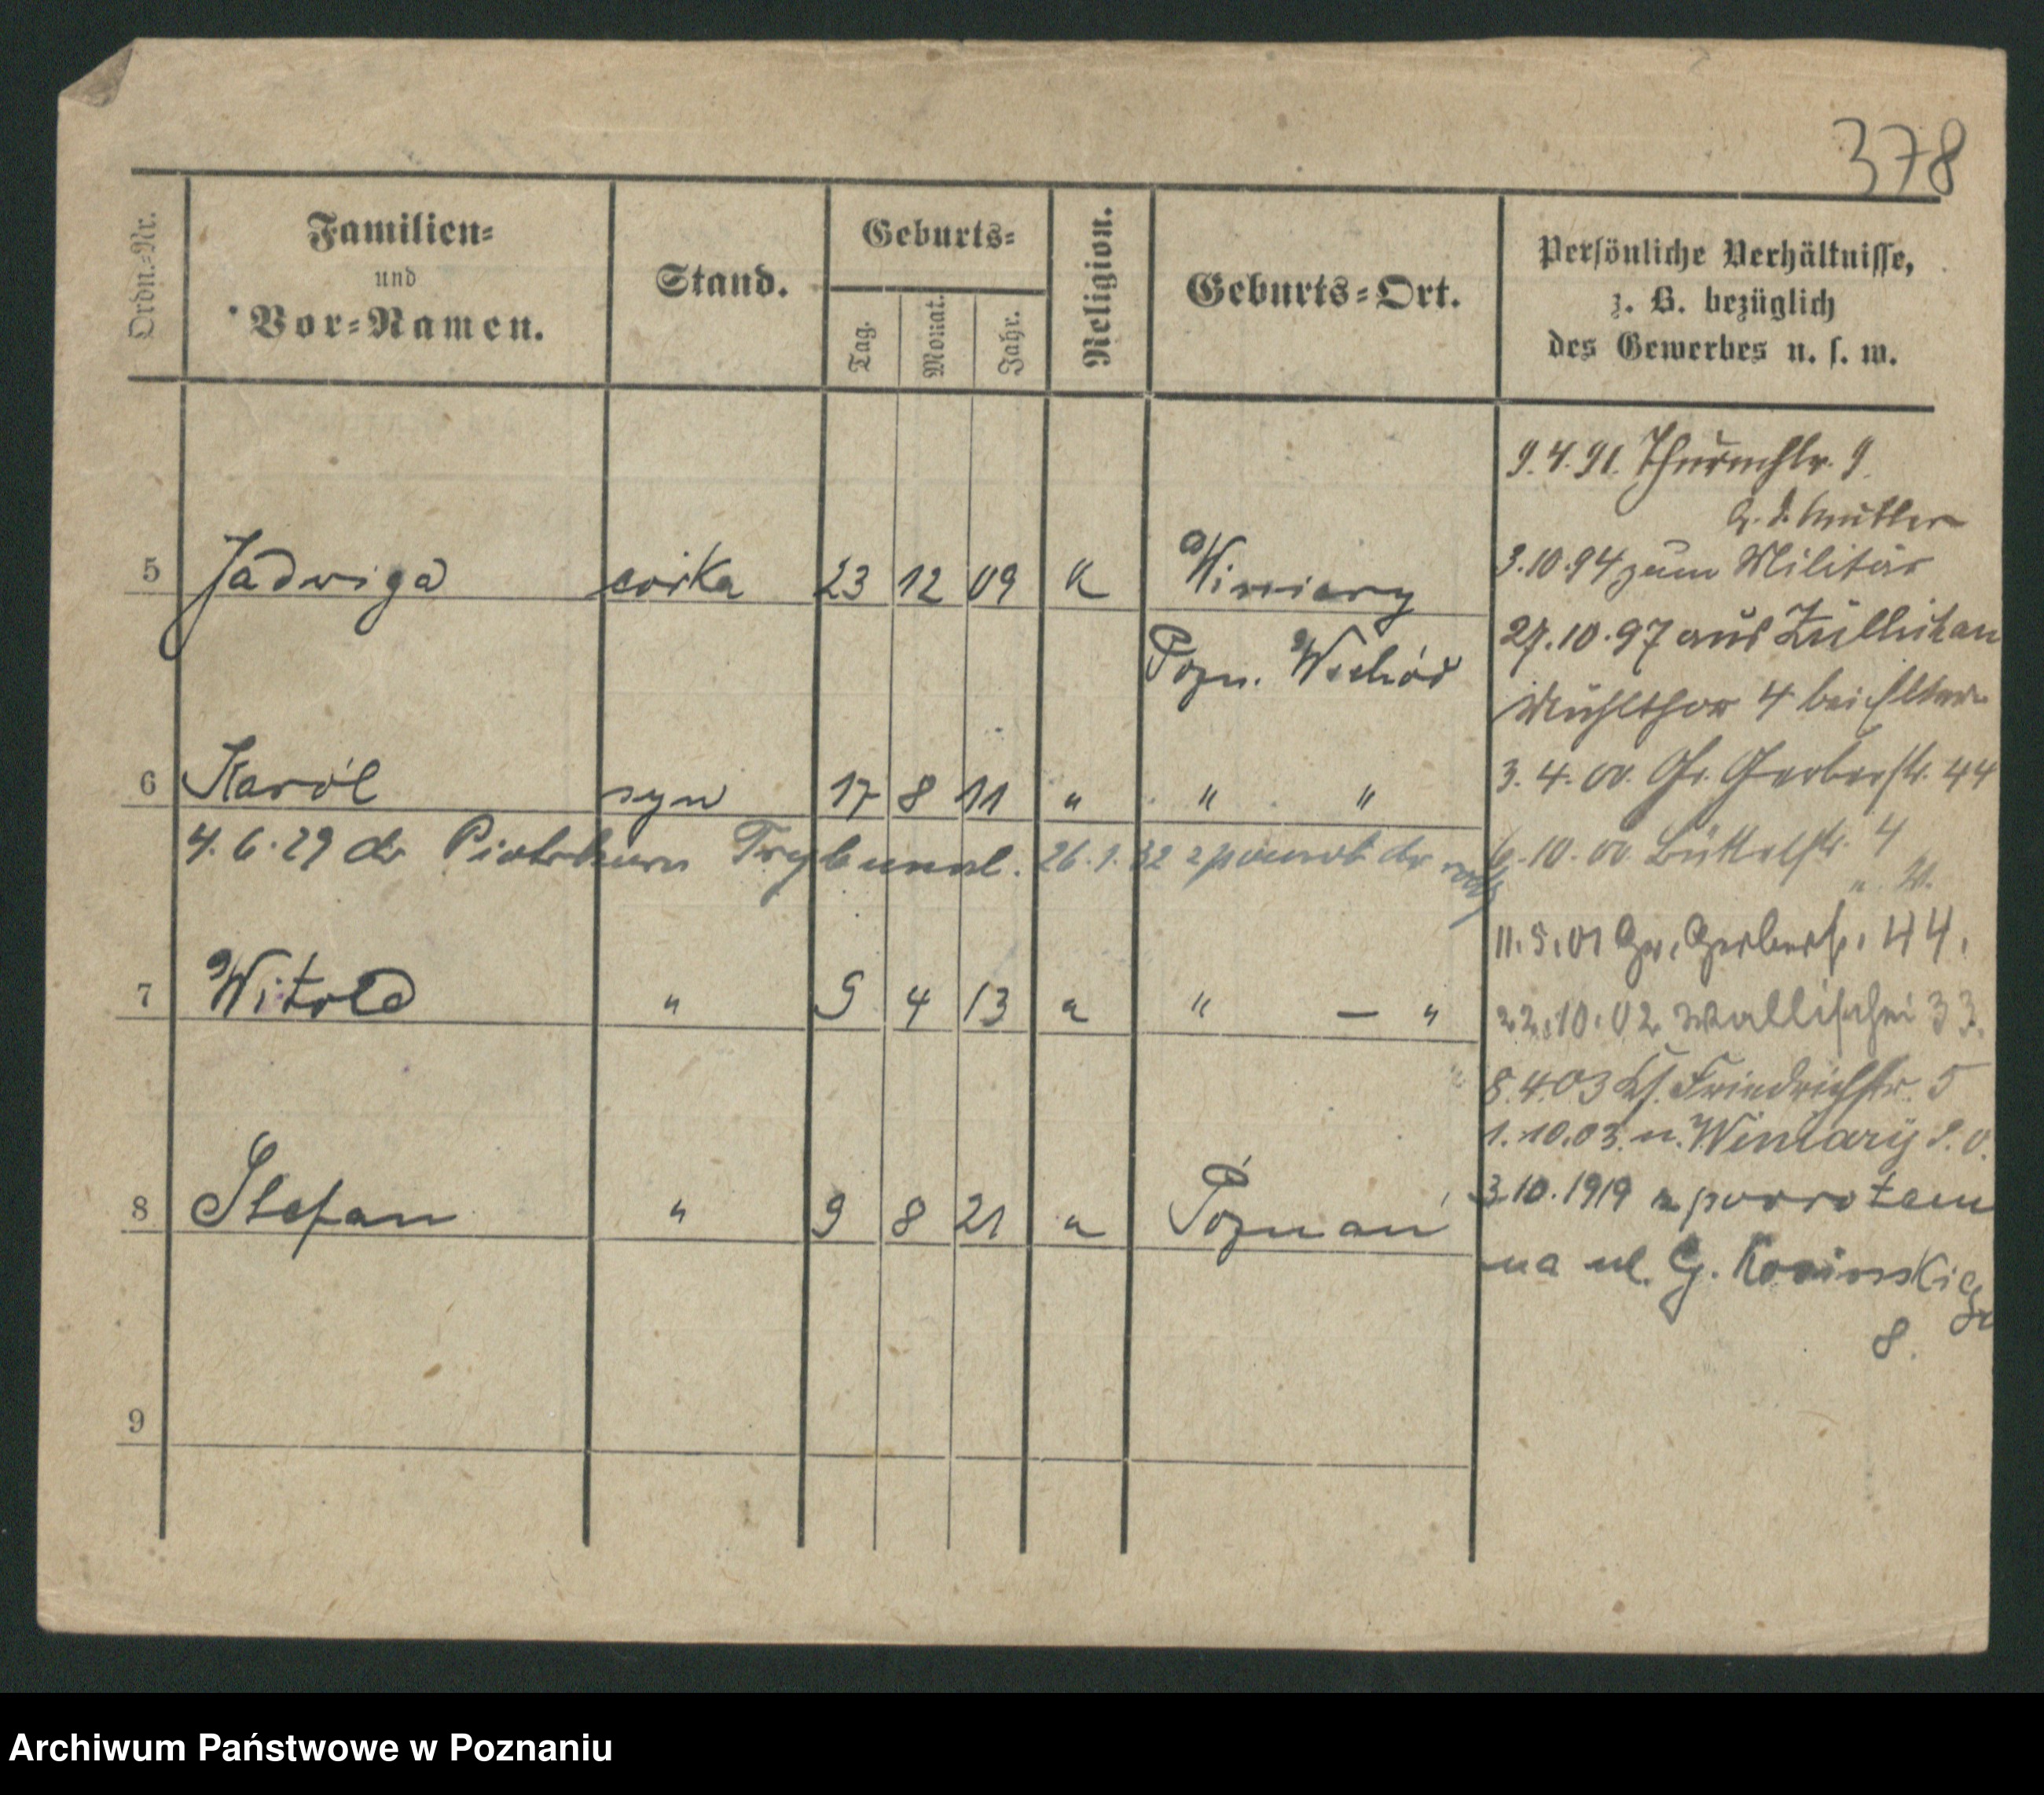 378
Ordn.-Nr.
Familien-
und
Vor-Namen.
Stand.
Geburts-
Tag.
Monat.
Jahr.
Religion.
Geburts-Ort.
Persönliche Verhältnisse,
z. B. bezüglich
des Gewerbes u. s. w.
5 Jadwiga córka 23 12 09 K Winiary
Pozn. Wschód
6 Karól syn 17 8 11 " " "
4.6.29 do Piotrkowa Trybunal. 26.1.32 z powrot do
7 Witold " 9 4 13 " " — "
8 Stefan " 9 8 21 " Poznań
9
9.4.91. Thurmstr. 9.
b. d. Mutter
3.10.94 zum Militär
27.10.97 aus Züllichau
Mühlthor 4 bei Eltern
3.4.00. Gr. Gerberstr. 44
6.10.00 Büttelstr. 4
11.5.01 Gr. Gerberstr. 44.
22.10.02 Wallischei 33.
8.4.03 Ks. Friedrichstr. 5
1.10.03. n. Winiary
3.10.1919 z powrotem
na ul. G. Kosinskiego
8.
Archiwum Państwowe w Poznaniu